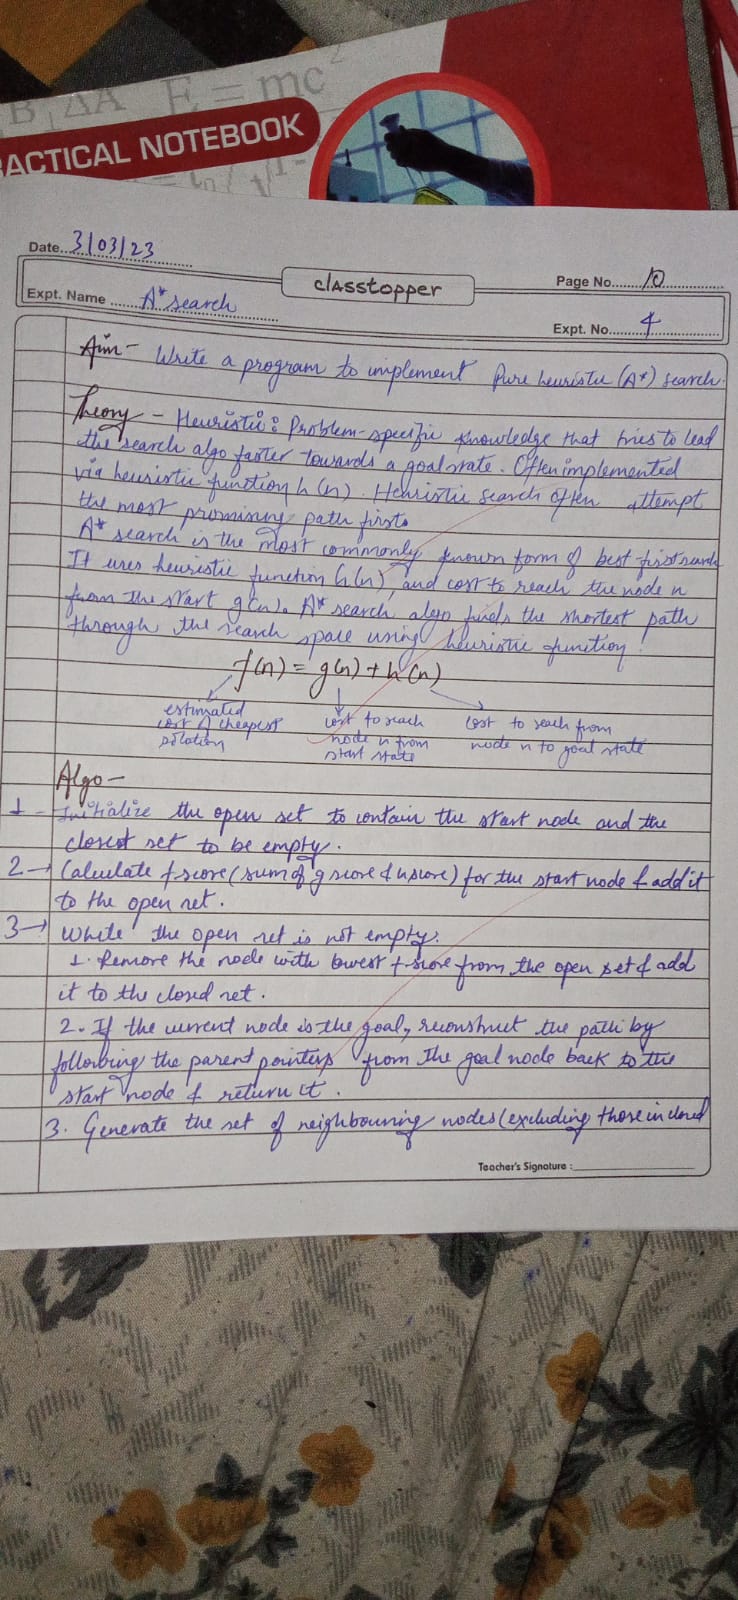 B ΔA E = mc²
RACTICAL NOTEBOOK
Date..3/03/23
classtopper
Page No. 10
Expt. Name A* search
Expt. No. 4
Aim - Write a program to implement Pure heuristic (A*) search.
Theory - Heuristic: Problem-specific knowledge that tries to lead
the search algo faster towards a goal state. Often implemented
via heuristic function h(n). Heuristic search often attempt
the most promising path first.
A* search is the most commonly known form of best-first search
It uses heuristic function h(n), and cost to reach the node n
from the start g(n). A* search algo finds the shortest path
through the search space using heuristic function.
f(n) = g(n) + h(n)
estimated cost to reach cost to reach from
cost of cheapest node n from node n to goal state
solution start state
Algo -
1 - Initialize the open set to contain the start node and the
closed set to be empty.
2 → Calculate f-score (sum of g score & h score) for the start node & add it
to the open set.
3 → While the open set is not empty:
1. Remove the node with lowest f-score from the open set & add
it to the closed set.
2. If the current node is the goal, reconstruct the path by
following the parent pointers from the goal node back to the
start node & return it.
3. Generate the set of neighbouring nodes (excluding those in closed
Teacher's Signature :